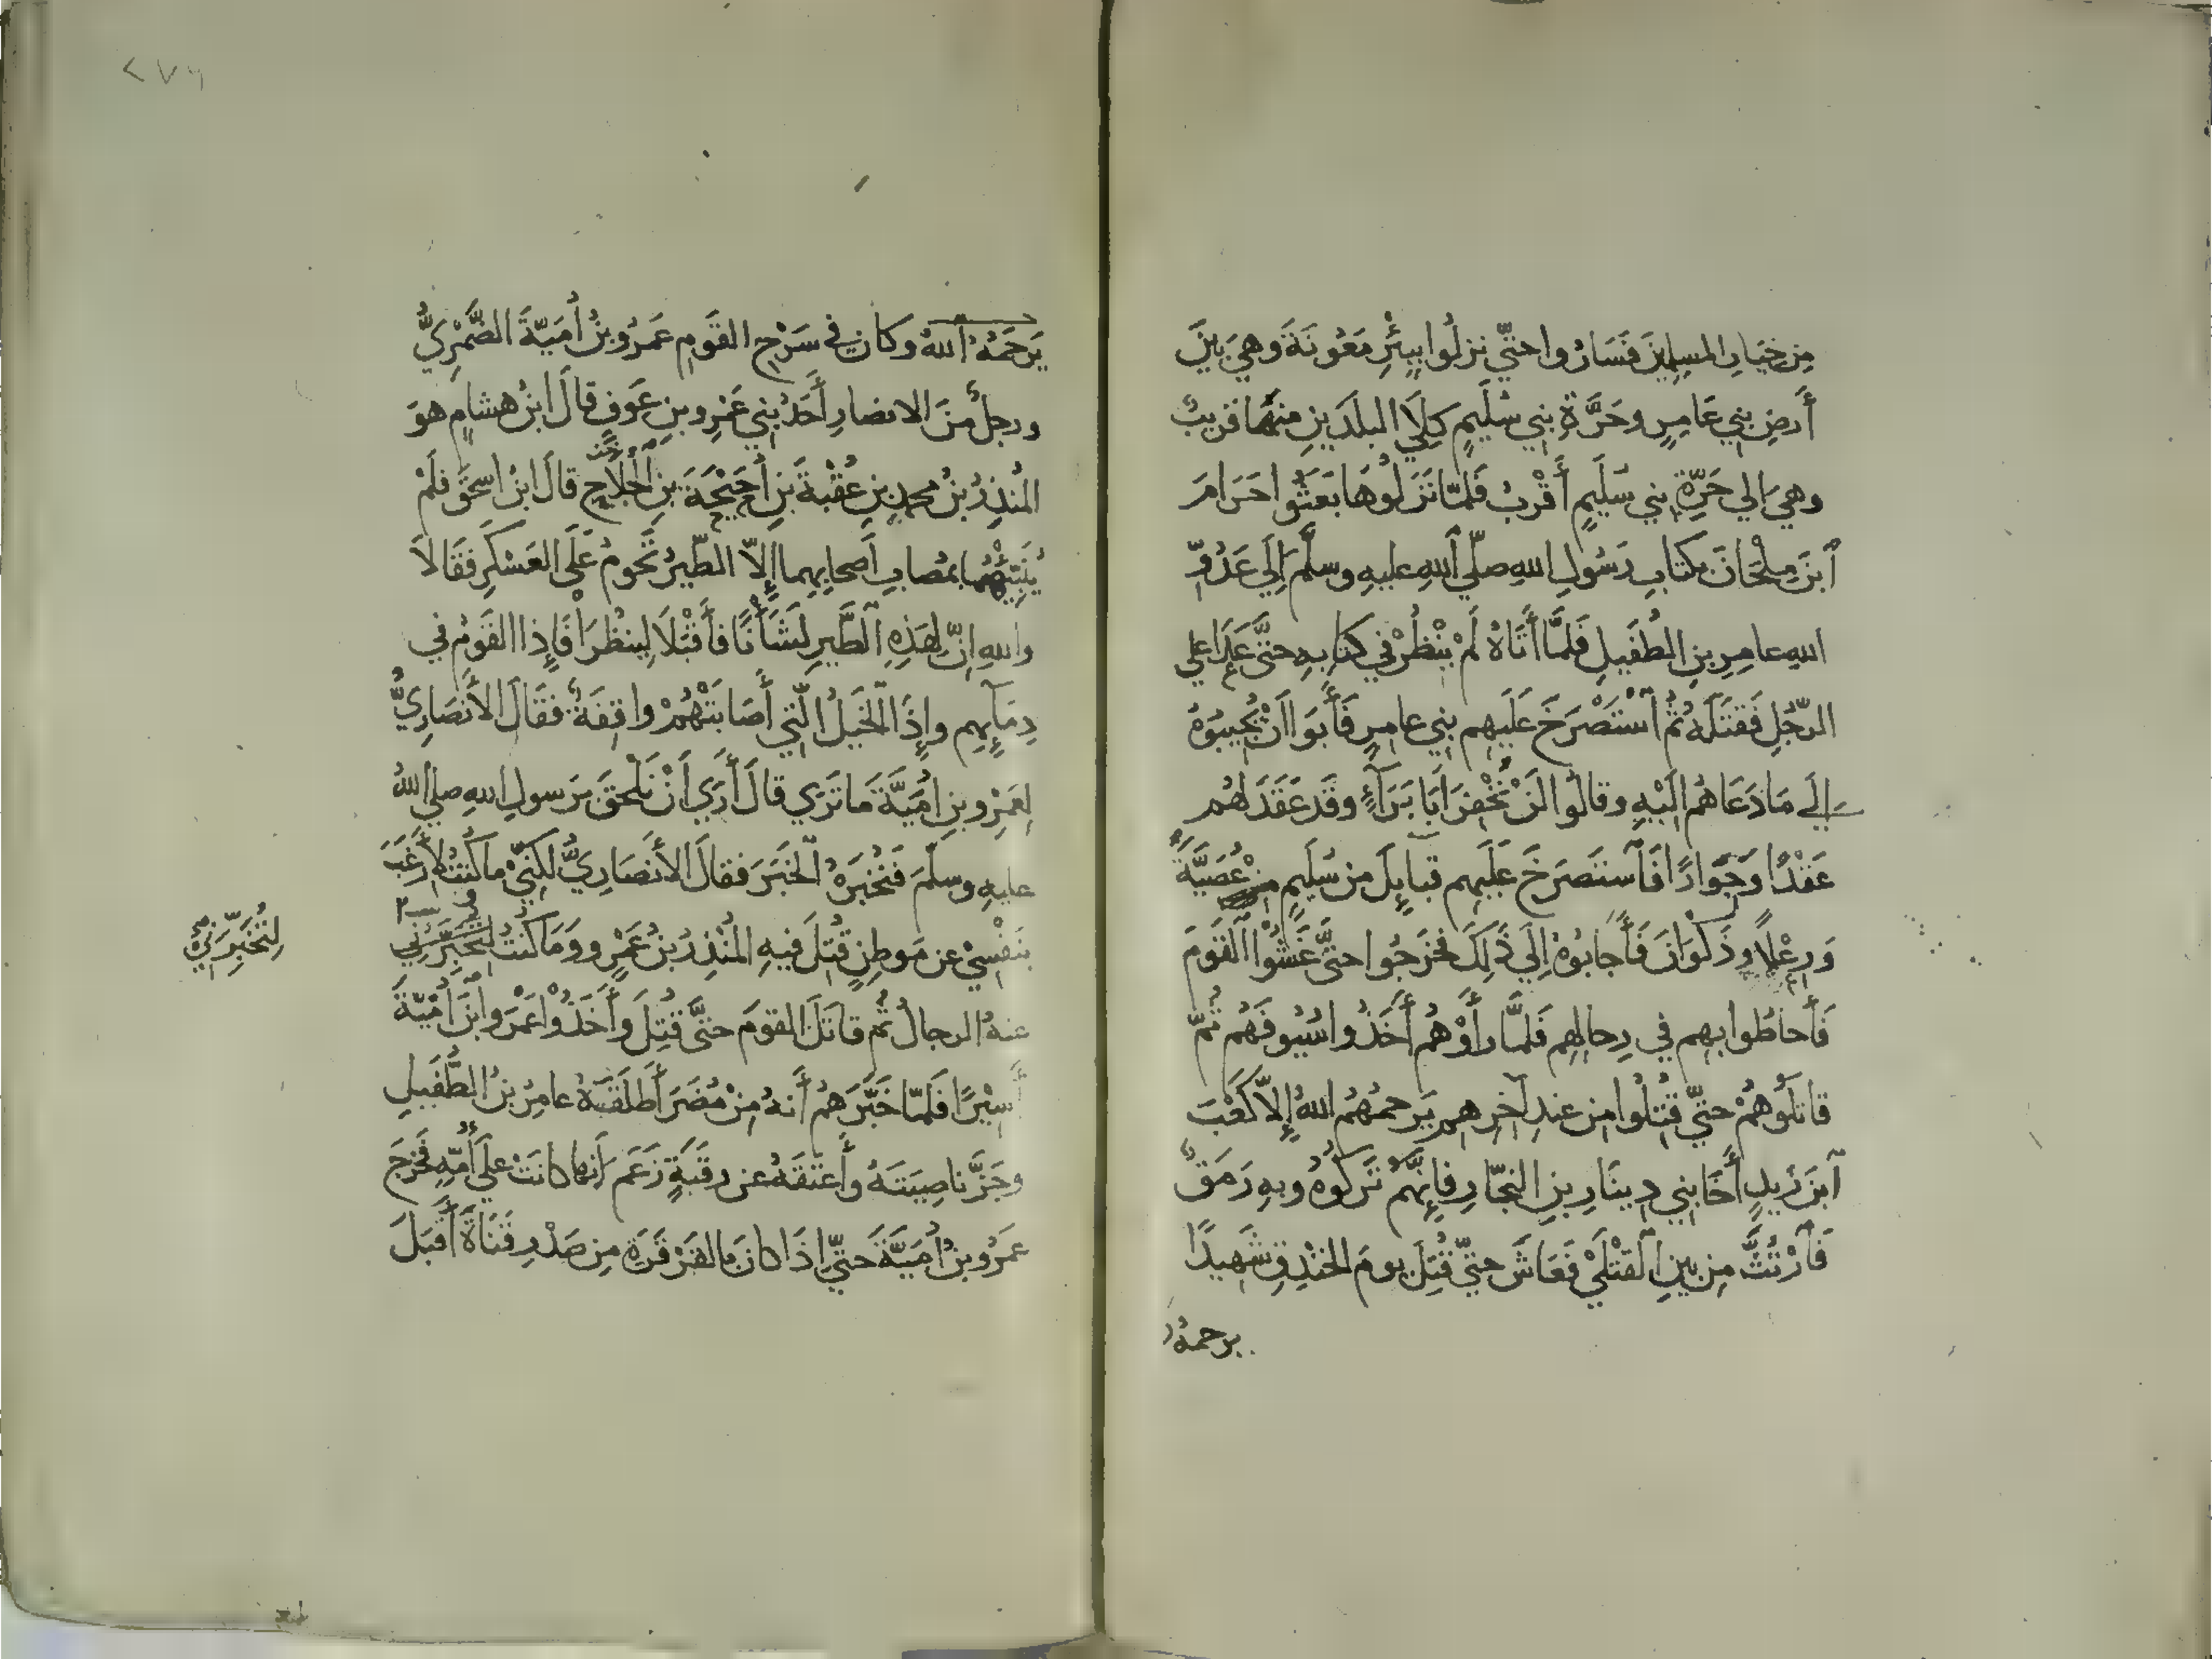 مِن خِيَارِ المسلِمينَ فَسَارُوا حتّي نزلُوا بِبِئْرِ مَعُونَةَ وَهيَ بَينَ
أَرضِ بني عَامِرٍ وحَرَّةِ بني سُلَيمٍ كِلَا البلدَينِ مِنهَا قريبٌ
وهيَ الي حَرَّةِ بني سُلَيمٍ أقْربُ فَلمّا نَزلُوهَا بَعَثُوا حَرَامَ
ٱبنَ مِلْحَانَ بكتابِ رَسُولِ اللهِ صلّي ٱللهِ عليهِ وسلَّمَ إِلَي عَدُوِّ
اللهِ عامِرِ بنِ الطُفَيلِ فَلمَّا أَتَاهُ لَمْ يَنْظُرْ في كتابِهِ حتَّي عَدَا علي
الرّجُلِ فَقتَلَهُ ثُمَّ ٱسْتَصْرَخَ عَلَيهِم بني عامِرٍ فَأَبَوا أنْ يُجِيبُوهُ
إلَي مَا دَعَاهُم إلَيْهِ وقالُوا لَنْ نُخْفِرَ أبَا بَرَآءٍ وقَد عَقَدَ لهُم
عَقْدًا وَجِوَارًا فَٱستَصرَخَ عَلَيهِم قبايِلَ من سُلَيمٍ عُصَيَّةَ
وَرِعْلًا وذَكْوَانَ فَأَجابُوهُ إِلَي ذَلِكَ فخَرجُوا حتَّي غَشُوا ٱلقَومَ
فَأَحاطُوا بهِم في رِحالِهِم فَلمَّا رأَوْهُم أَخَذُوا سُيُوفَهُم ثُمَّ
قاتلُوهُمْ حتّي قُتِلُوا مِن عندِ آخِرِهِم يَرحمُهُم اللهُ إِلاّ كَعْبَ
ٱبنَ زَيدٍ أَخَا بني دِينَارِ بنِ النجّارِ فإِنَّهُم تَركُوهُ وبهِ رَمَقٌ
فَٱرْتُثَّ مِن بَينِ ٱلقَتْلَي فَعَاشَ حتّي قُتِلَ يومَ الخَنْدقِ شَهِيدًا
يرحمهُ
٢٧٦
يَرحَمُهُ ٱللهُ وكانَ في سَرْحِ القَومِ عَمرُو بنُ أُمَيّةَ الضَّمْرِيُّ
ورجلٌ منَ الانصارِ أَحَدُ بني عَمْرِو بنِ عَوفٍ قالَ ابنُ هشامٍ هوَ
المُنذِرُ بنُ محمدِ بنِ عُقْبةَ بنِ أُحَيْحَةَ بنِ ٱلجُلَاحِ قالَ ابنُ اسحٰقَ فلَمْ
يُنَبِّئْهُمَا بمُصابِ أَصحابِهِما إِلاّ الطّيرُ تَحُومُ عَلَي العَسْكَرِ فقَالاَ
واللهِ إنَّ لِهَذِهِ ٱلطَّيرِ لَشَأْنًا فأَقْبَلَا لِينظُرَا فَإِذا القَومُ في
دِمَآيِهِم وإِذَا ٱلخَيلُ الّتي أَصَابَتْهُمْ واقِفَةٌ فقَالَ الأَنصَارِيُّ
لِعَمْرِو بنِ أُمَيَّةَ مَا تَرَي قالَ أَرَي أَنْ نَلْحَقَ برَسولِ اللهِ صلي اللهُ
عليهِ وسلّمَ فَنُخْبِرَهُ ٱلخَبَرَ فقالَ الأَنْصَارِيُّ لكِنّي ما كُنتُ لأَرْغَبَ
بنَفْسِي عن مَوطِنٍ قُتِلَ فيهِ المُنْذِرُ بنُ عَمْرٍو وَمَا كُنتُ لِتُخْبِرَني
لِتُخَبِّرَنِي
عنهُ الرجالُ ثُمّ قاتَلَ القومَ حتَّي قُتِلَ وَأَخَذُوا عَمْرَو ٱبْنَ أُمَيّةَ
أَسِيْرًا فَلمّا خَبَّرَهُم أَنهُ مِنْ مُضَرَ أَطلَقَهُ عامِرُ بنُ الطُّفَيلِ
وجَزَّ ناصِيَتَهُ وأَعتقَهُ عن رقَبَةٍ زَعَمَ أَنها كانَتْ علَي أُمِّهِ فَخرَجَ
عَمرُو بنُ أُمَيَّةَ حتَّي إِذَا كانَ بالقَرْقَرَةِ مِن صَدْرِ قَنَاةَ أَقبَلَ